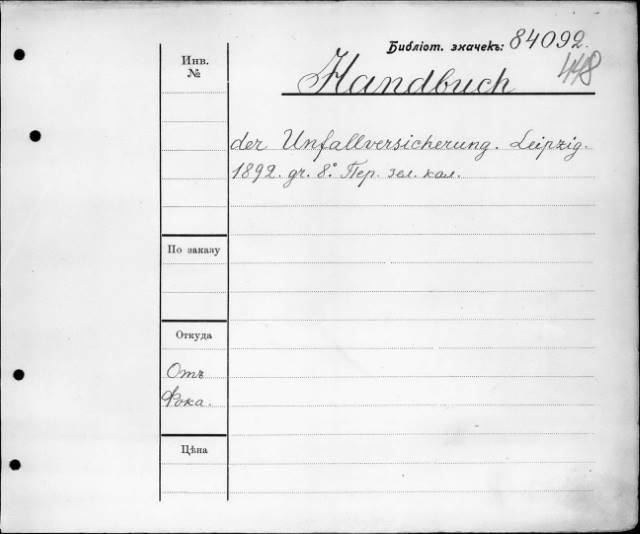 Библіот. значекъ: 84092.
448
Инв.
№
Handbuch
der Unfallversicherung. Leipzig.
1892. gr. 8.° Пер. зел. кал.
По заказу
Откуда
Отъ
Фока.
Цѣна